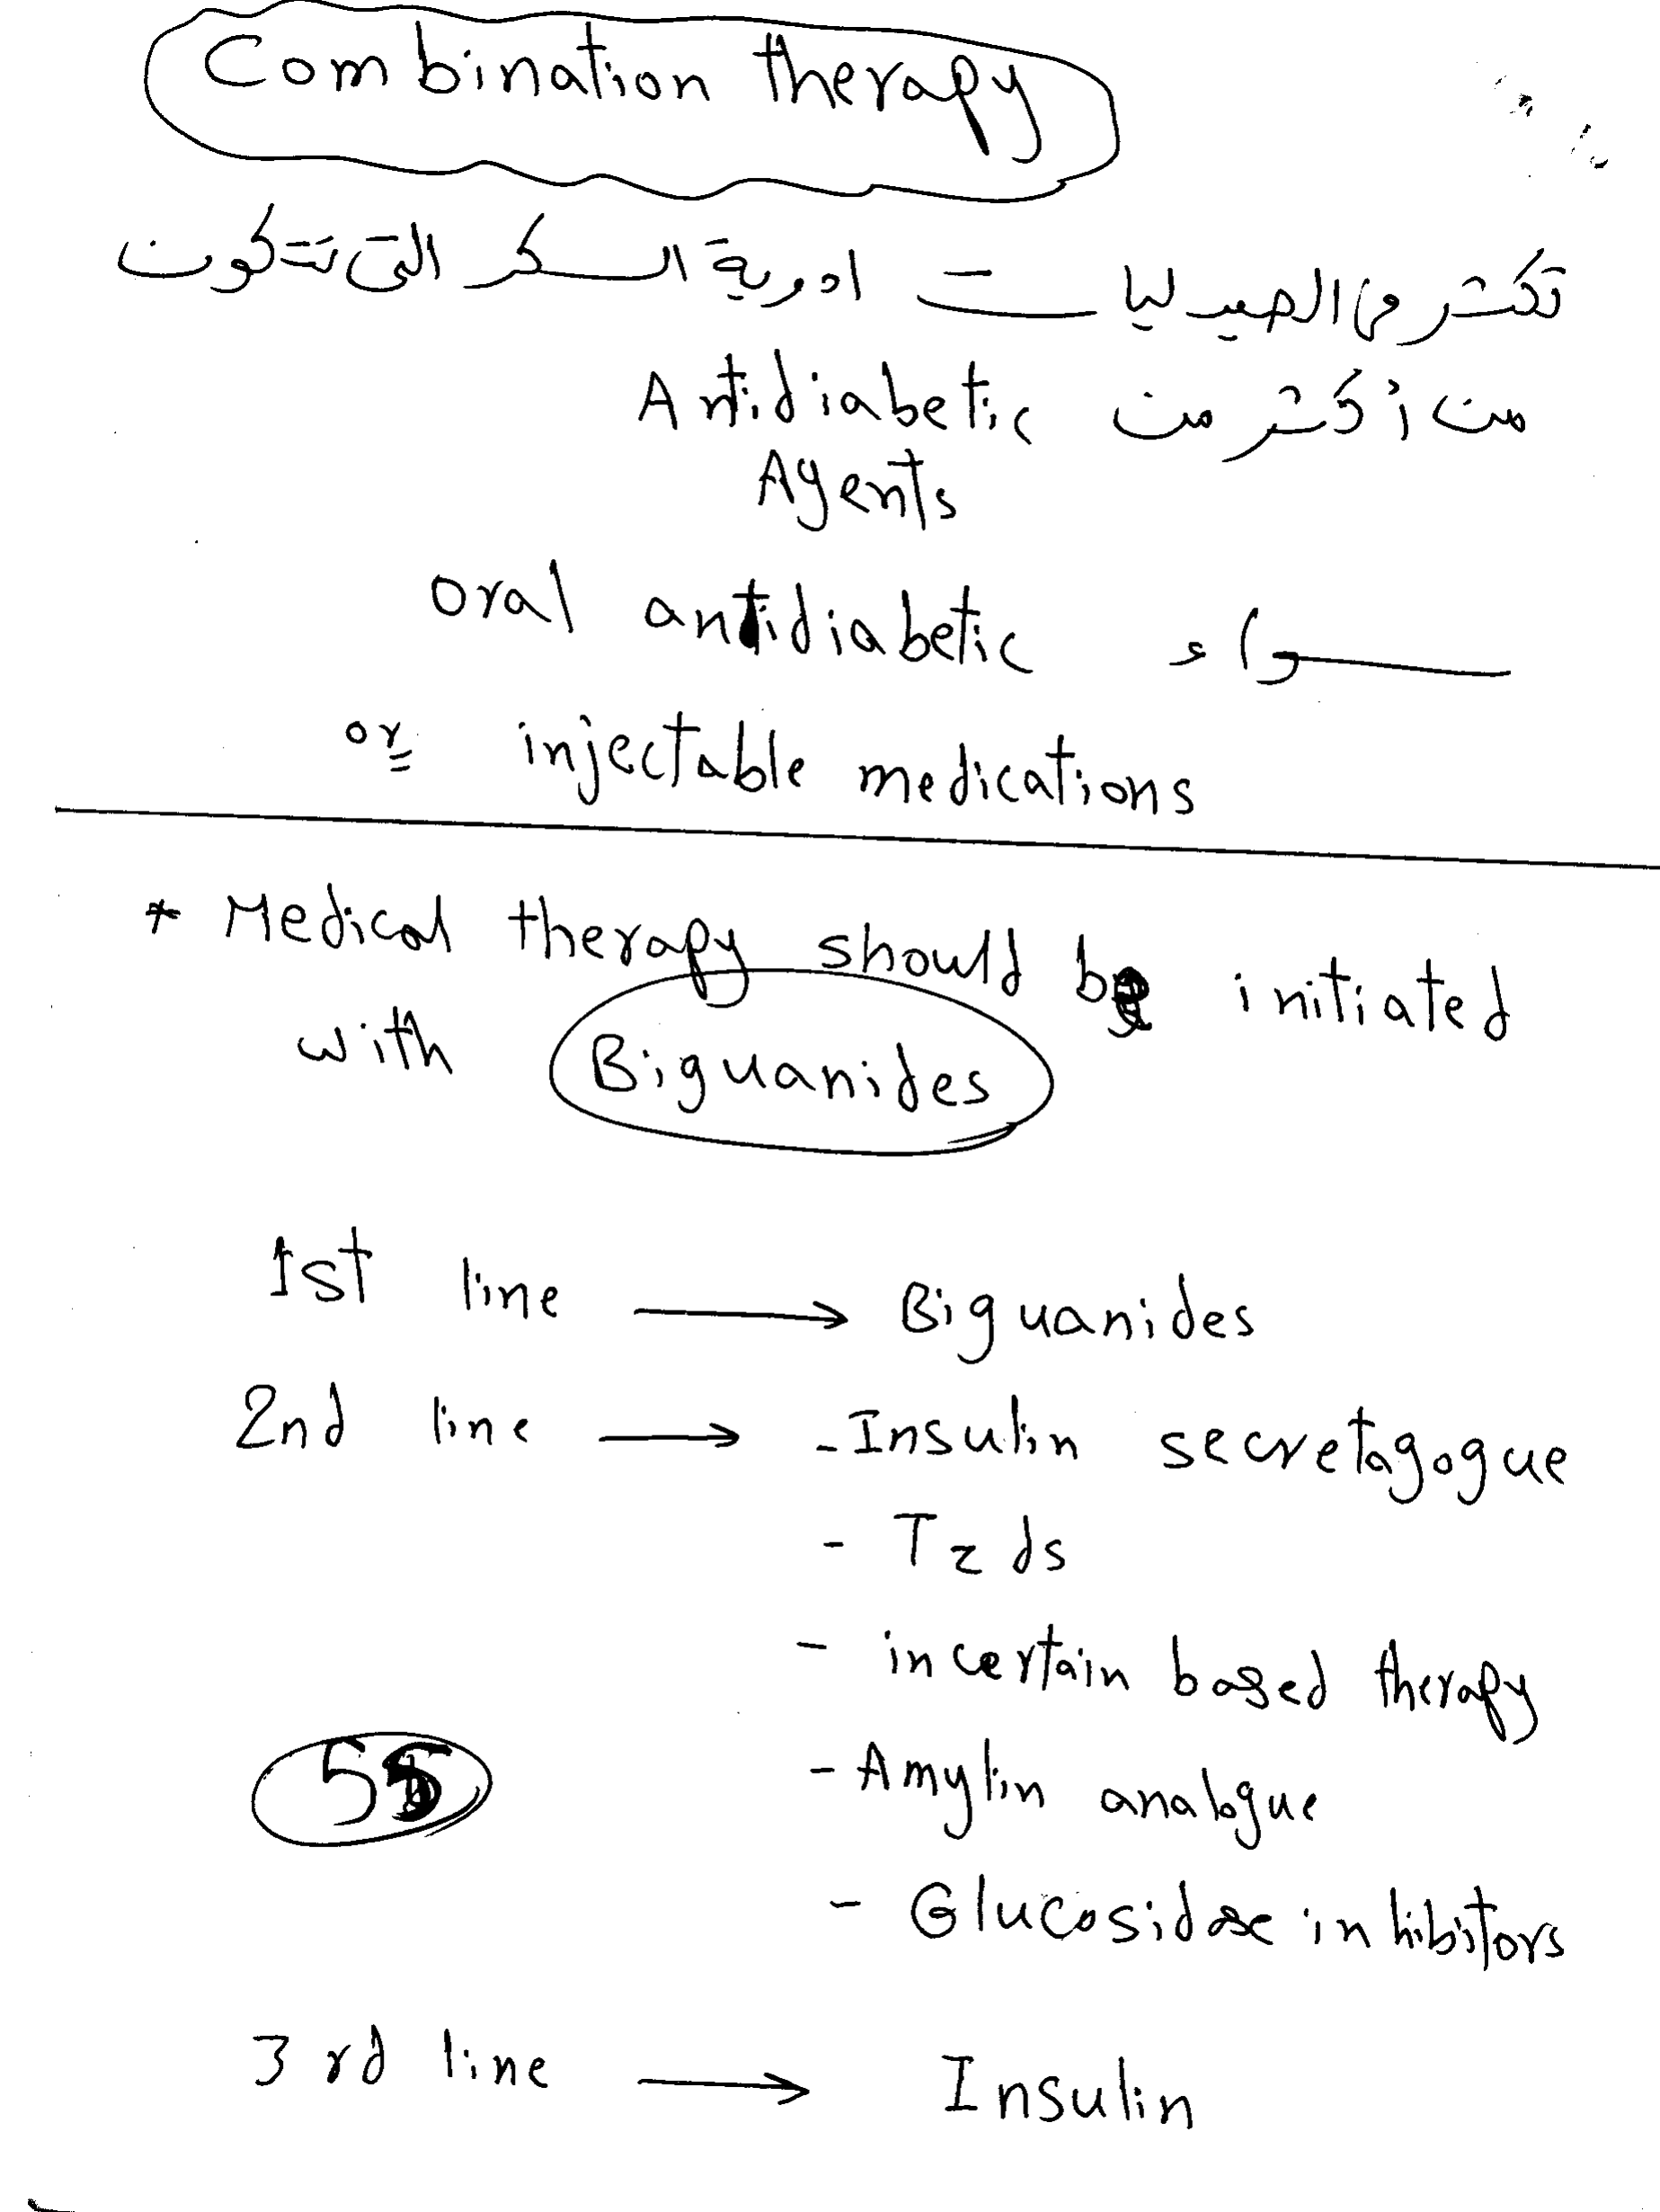 Combination therapy
تكثر في الصيدليات ادوية السكر التى تتكون
من أكثر من Antidiabetic
Agents
سواء oral antidiabetic
or injectable medications
* Medical therapy should be initiated
with Biguanides
1st line → Biguanides
2nd line → - Insulin secretagogue
- Tzds
- incertain based therapy
- Amylin analogue
- Glucosidase inhibitors
55
3rd line → Insulin